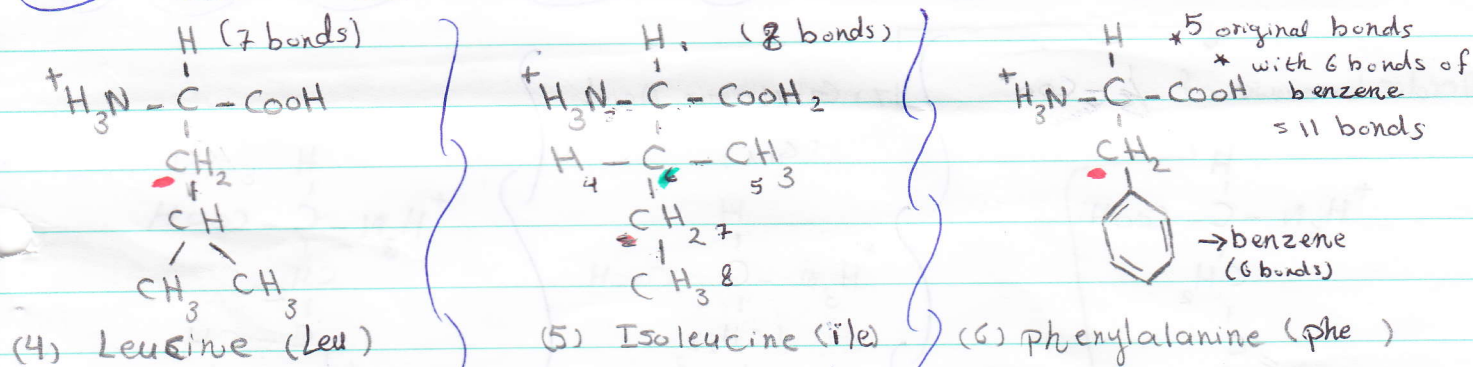 H (7 bonds)
+H3N - C - COOH
CH2
CH
CH3 CH3
(4) Leucine (Leu)
H (8 bonds)
+H3N - C - COOH2
H - C - CH3
4 6 5
CH2 7
CH3 8
(5) Isoleucine (ile)
H *5 original bonds
* with 6 bonds of
+H3N - C - COOH benzene
= 11 bonds
CH2
→benzene
(6 bonds)
(6) phenylalanine (phe )